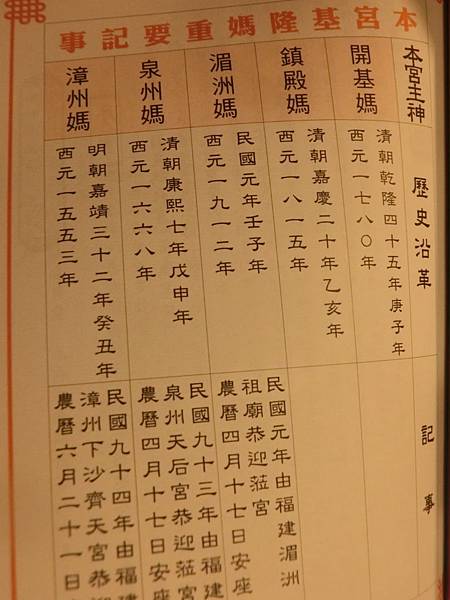 本宮基隆媽重要記事
本宮主神
歷史沿革
記事
開基媽
清朝乾隆四十五年庚子年
西元一七八〇年
鎮殿媽
清朝嘉慶二十年乙亥年
西元一八一五年
湄洲媽
民國元年壬子年
西元一九一二年
民國元年由福建湄洲
祖廟恭迎蒞宮
農曆四月十七日安座
泉州媽
清朝康熙七年戊申年
西元一六六八年
民國九十三年由福建
泉州天后宮恭迎蒞宮
農曆四月十七日安座
漳州媽
明朝嘉靖三十二年癸丑年
西元一五五三年
民國九十四年由福建
漳州下沙齊天宮恭迎
農曆六月二十一日